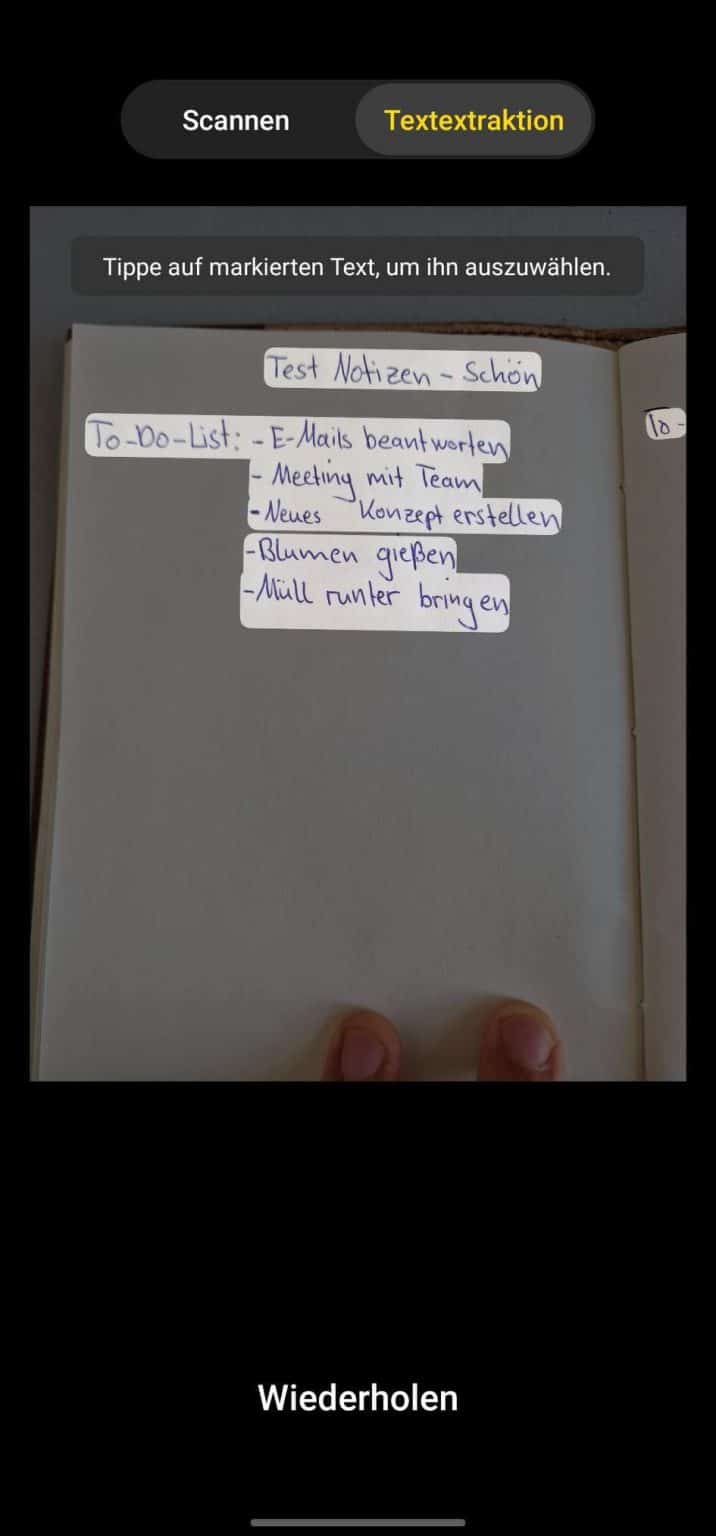 Scannen Textextraktion
Tippe auf markierten Text, um ihn auszuwählen.
Test Notizen - Schön
To-Do-List: - E-Mails beantworten
- Meeting mit Team
- Neues Konzept erstellen
- Blumen gießen
- Müll runter bringen
To -
Wiederholen